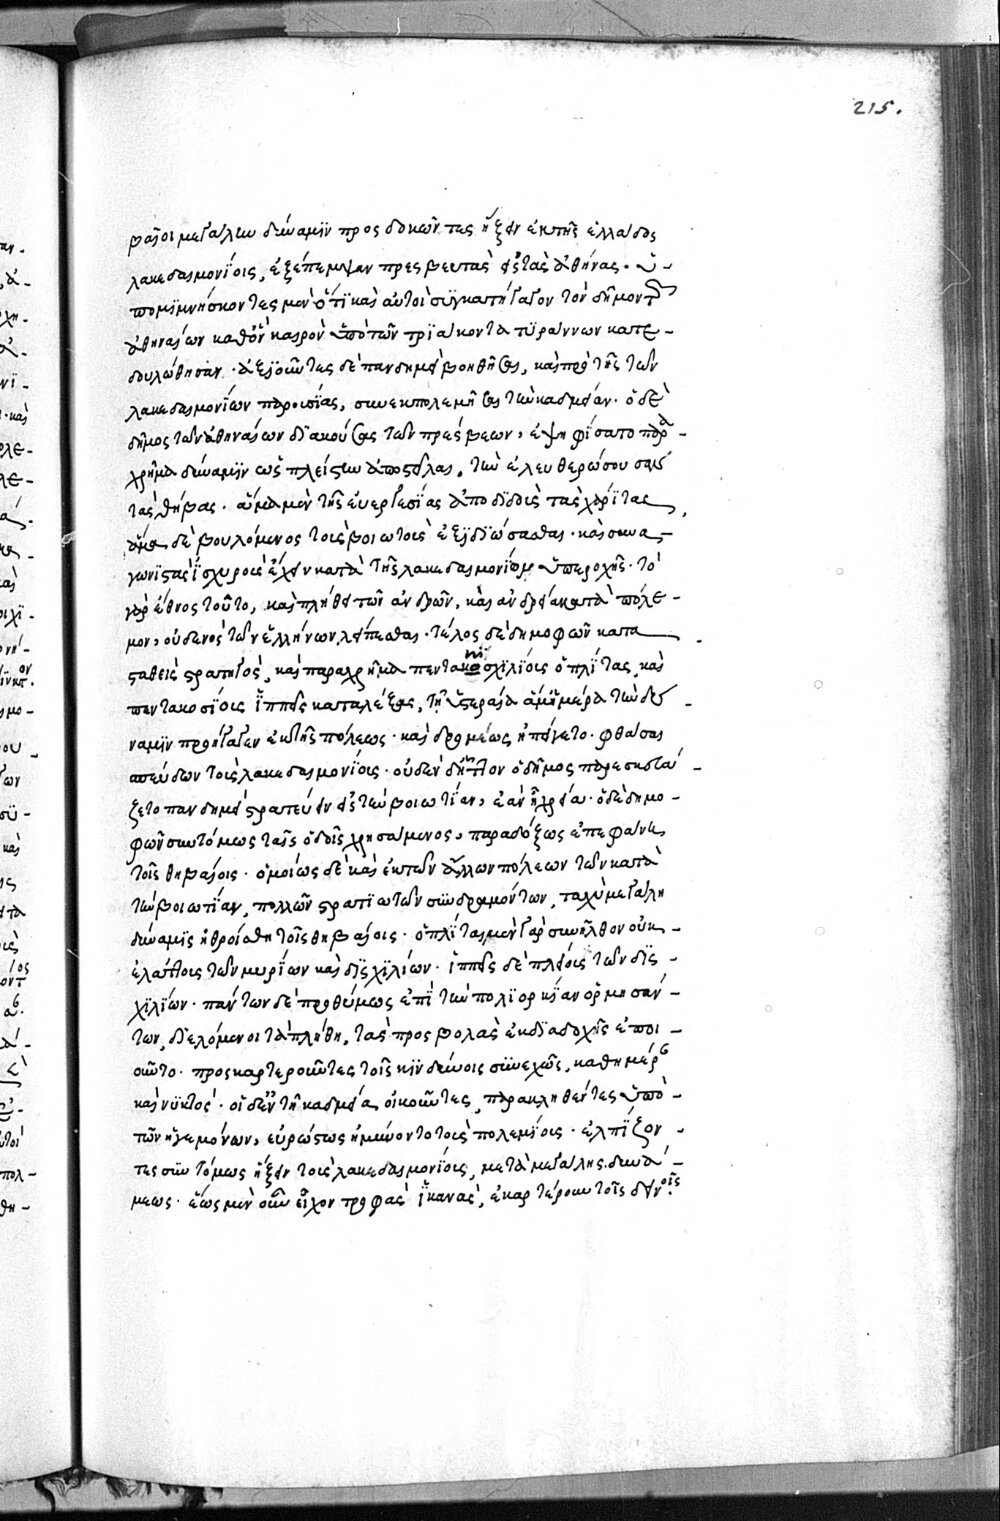 215.
βαῖοι μεγάλην δύναμϊν προσδοκῶντες ἥξειν ἐκ τῆς ἑλλάδος
λακεδαιμονίοις, ἐξέπεμψαν πρεσβευτὰς εἰς τὰς ἀθήνας. ὑ-
πομϊμνήσκοντες μὲν ὅτι καὶ αὐτοὶ συγκατήγαγον τὸν δῆμον τ
ἀθηναίων καθ' ὃν καιρὸν ὑπὸ τῶν τριάκοντα τυράννων κατε-
δουλώθησαν. ἀξιοῦντες δὲ πανδημεὶ βοηθῆσαι, καὶ πρὸ τῆς τῶν
λακεδαιμονίων παρουσίας, συνεκπολεμῆσαι τὴν καδμείαν. ὁ δὲ
δῆμος τῶν ἀθηναίων διακούσας τῶν πρέσβεων, ἐψηφίσατο παρα-
χρῆμα δύναμιν ὡς πλείστην ἀποστεῖλαι, τὴν ἐλευθερώσουσαν
τὰς θήβας. ἅμα μὲν τῆς εὐεργεσίας ἀποδιδοὺς τὰς χάριτας,
ἅμα δὲ βουλόμενος τοὺς βοιωτοὺς ἐξϊδϊώσασθαι. καὶ συνα-
γωνιστὰς ἰσχυροὺς ἔχειν κατὰ τῆς λακεδαιμονίων ὑπεροχῆς. τὸ
γὰρ ἔθνος τοῦτο, καὶ πλήθει τῶν ἀνδρῶν, καὶ ἀνδρεία κατὰ πόλε-
μον, οὐδενὸς τῶν ἑλλήνων λείπεσθαι. τέλος δὲ δημοφῶν κατα
σταθεὶς στρατηγὸς, καὶ παραχρῆμα πεντακισχιλίους ὁπλίτας, καὶ
πεντακοσίους ἱππεῖς καταλέξας, τῇ ὑστεραία ἅμ' ἡμέρα τὴν δύ
ναμιν προήγαγεν ἐκ τῆς πόλεως. καὶ δρομέως ἠπείγετο. φθάσαι
σπεύδων τοὺς λακεδαιμονίους. οὐδὲν δ' ἧττον ὁ δῆμος παρεσκευά-
ζετο πανδημεὶ στρατεύειν εἰς τὴν βοιωτίαν, ἐὰν ἦ χρεία. ὁ δὲ δημο-
φῶν συντόμως ταῖς ὁδοῖς χρησάμενος, παραδόξως ἐπεφάνη
τοῖς θηβαίοις. ὁμοίως δὲ καὶ ἐκ τῶν ἄλλων πόλεων τῶν κατὰ
τὴν βοιωτίαν, πολλῶν στρατιωτῶν συνδραμόντων, ταχὺ μεγάλη
δύναμις ἠθροίσθη τοῖς θηβαίοις. ὁπλῖται μὲν γὰρ συνῆλθον οὐκ-
ἐλάττους τῶν μυρίων καὶ δισχιλίων. ἱππεῖς δὲ πλείους τῶν δισ-
χιλίων. πάντων δὲ προθύμως ἐπὶ τὴν πολϊορκίαν ὁρμησάν-
των, διελόμενοι τὰ πλήθη, τὰς προσβολὰς ἐκ διαδοχῆς ἐποι-
οῦντο. προσκαρτεροῦντες τοῖς κινδύνοις συνεχῶς, καθ' ἡμέρας
καὶ νυκτὸς. οἱ δ' ἐν τῇ καδμεία οἰκοῦντες, παρακληθέντες ὑπὸ-
τῶν ἡγεμόνων, εὐρώστως ἠμύνοντο τοὺς πολεμίους. ἐλπίζον-
τες συντόμως ἥξειν τοὺς λακεδαιμονίους, μετὰ μεγάλης δυνά-
μεως. ἕως μὲν οὖν εἶχον τροφὰς ἱκανὰς, ἐκαρτέρουν τοῖς δεινοῖς.